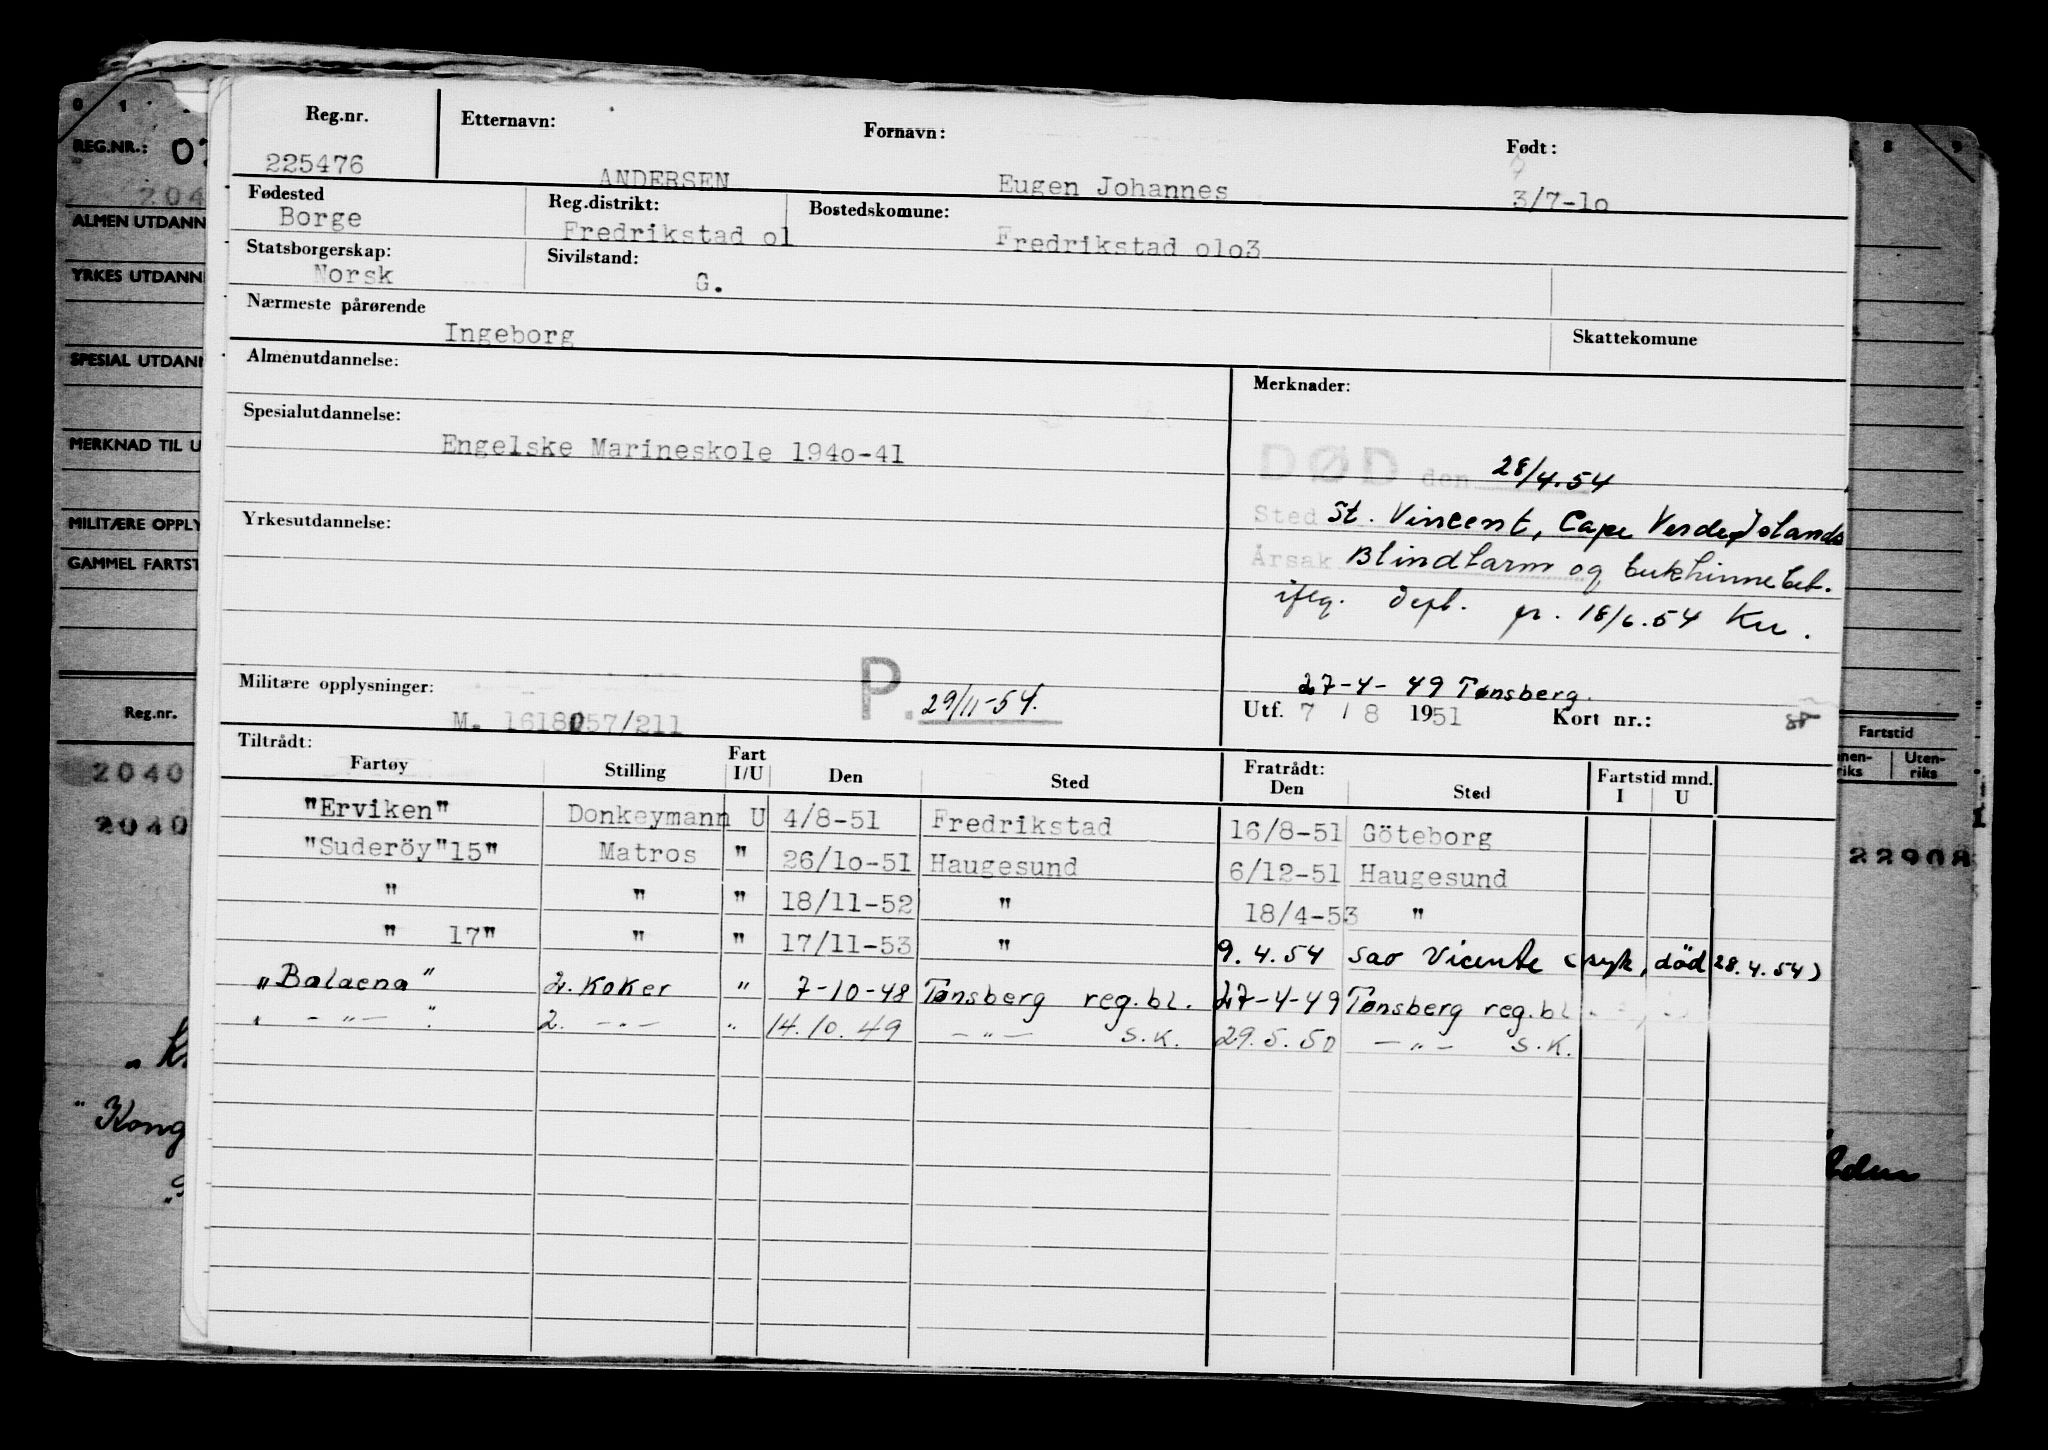 Reg.nr. Etternavn: Fornavn: Født:
225476 ANDERSEN Eugen Johannes 3/7-1o
Fødested Reg.distrikt: Bostedskomune:
Borge Fredrikstad o1 Fredrikstad o1o3
Statsborgerskap: Sivilstand:
Norsk G.
Nærmeste pårørende Skattekomune
Ingeborg
Almenutdannelse: Merknader:
Spesialutdannelse:
Engelske Marineskole 194o-41
DØD den 28/4.54
Sted St. Vincent, Cape Verde Islands
Årsak Blindtarm og bukhinnebet.
iflg. Dept. pr. 18/6.54 Ku.
Yrkesutdannelse:
27-4-49 Tønsberg.
Militære opplysninger: P. 29/11-54. Utf. 7/8 1951 Kort nr.:
M. 1618057/211
Tiltrådt: Fratrådt:
Fartøy Stilling Fart I/U Den Sted Den Sted Fartstid mnd. I U
"Erviken" Donkeymann U 4/8-51 Fredrikstad 16/8-51 Göteborg
"Suderöy"15" Matros " 26/1o-51 Haugesund 6/12-51 Haugesund
" " " 18/11-52 " 18/4-53 "
" 17" " " 17/11-53 " 9.4.54 Sao Vicente (syk, död 28.4.54)
"Balaena" 2. Koker " 7-10-48 Tønsberg reg.bl. 27-4-49 Tønsberg reg.bl.
" -"- " 2. -"- " 14.10.49 -"- S.K. 29.5.50 -"- S.K.
REG.NR.: 07
204
ALMEN UTDANN
YRKES UTDANN
SPESIAL UTDAN
MERKNAD TIL U
MILITÆRE OPPLY
GAMMEL FARTST
Reg.nr.
2040
2040
"Kong
Fartstid
nen-riks Uten-riks
22908